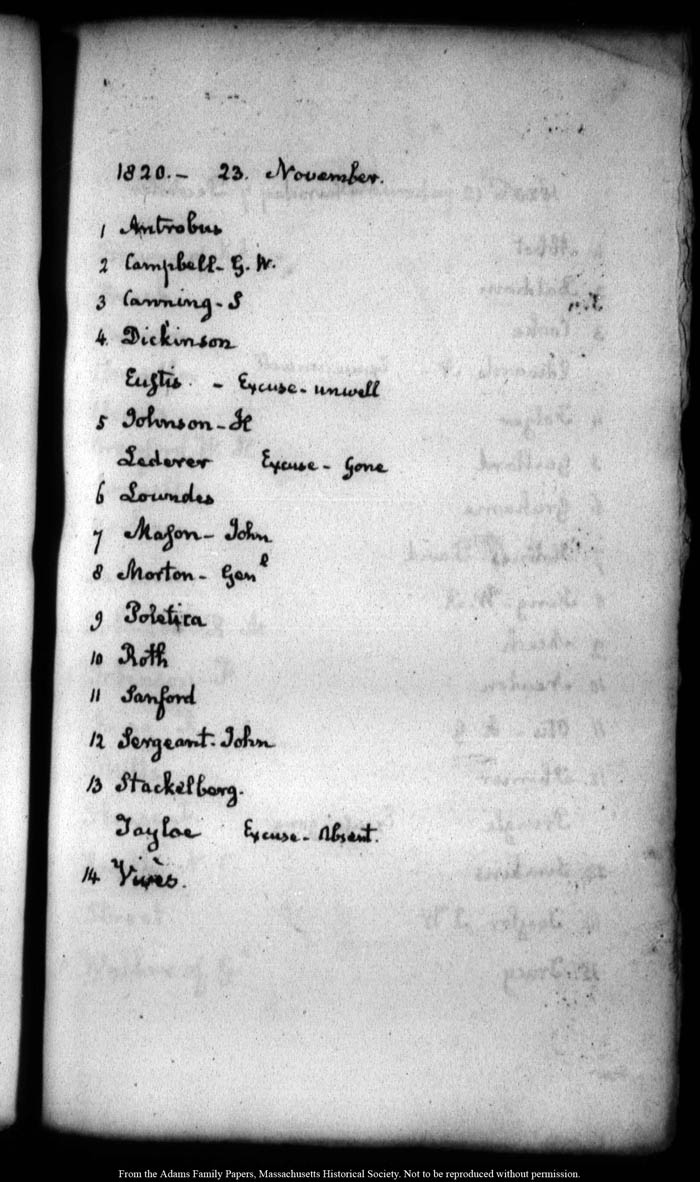 1820.- 23. November.
1 Antrobus
2 Campbell- G. W.
3 Canning- S
4. Dickinson
Eustis. - Excuse- unwell
5 Johnson- H
Lederer Excuse- Gone
6 Lowndes
7 Mason- John
8 Morton- Genl
9 Poletica
10 Roth
11 Sanford
12 Sergeant- John
13 Stackelberg.
Tayloe Excuse- Absent.
14 Vivès.
From the Adams Family Papers, Massachusetts Historical Society. Not to be reproduced without permission.